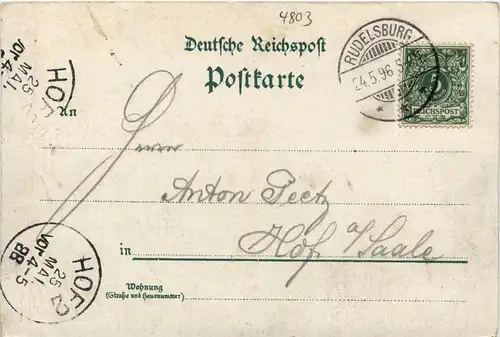 4803
Deutsche Reichspost
Postkarte
RUDELSBURG
24.5.96.5
* *
5
REICHSPOST
HOF
25
MAI
VOR 4-
An
Herrn
Anton Pectz
in Hof a/Saale
Wohnung
(Straße und Hausnummer)
HOF 2
25
MAI
VOR 4-5